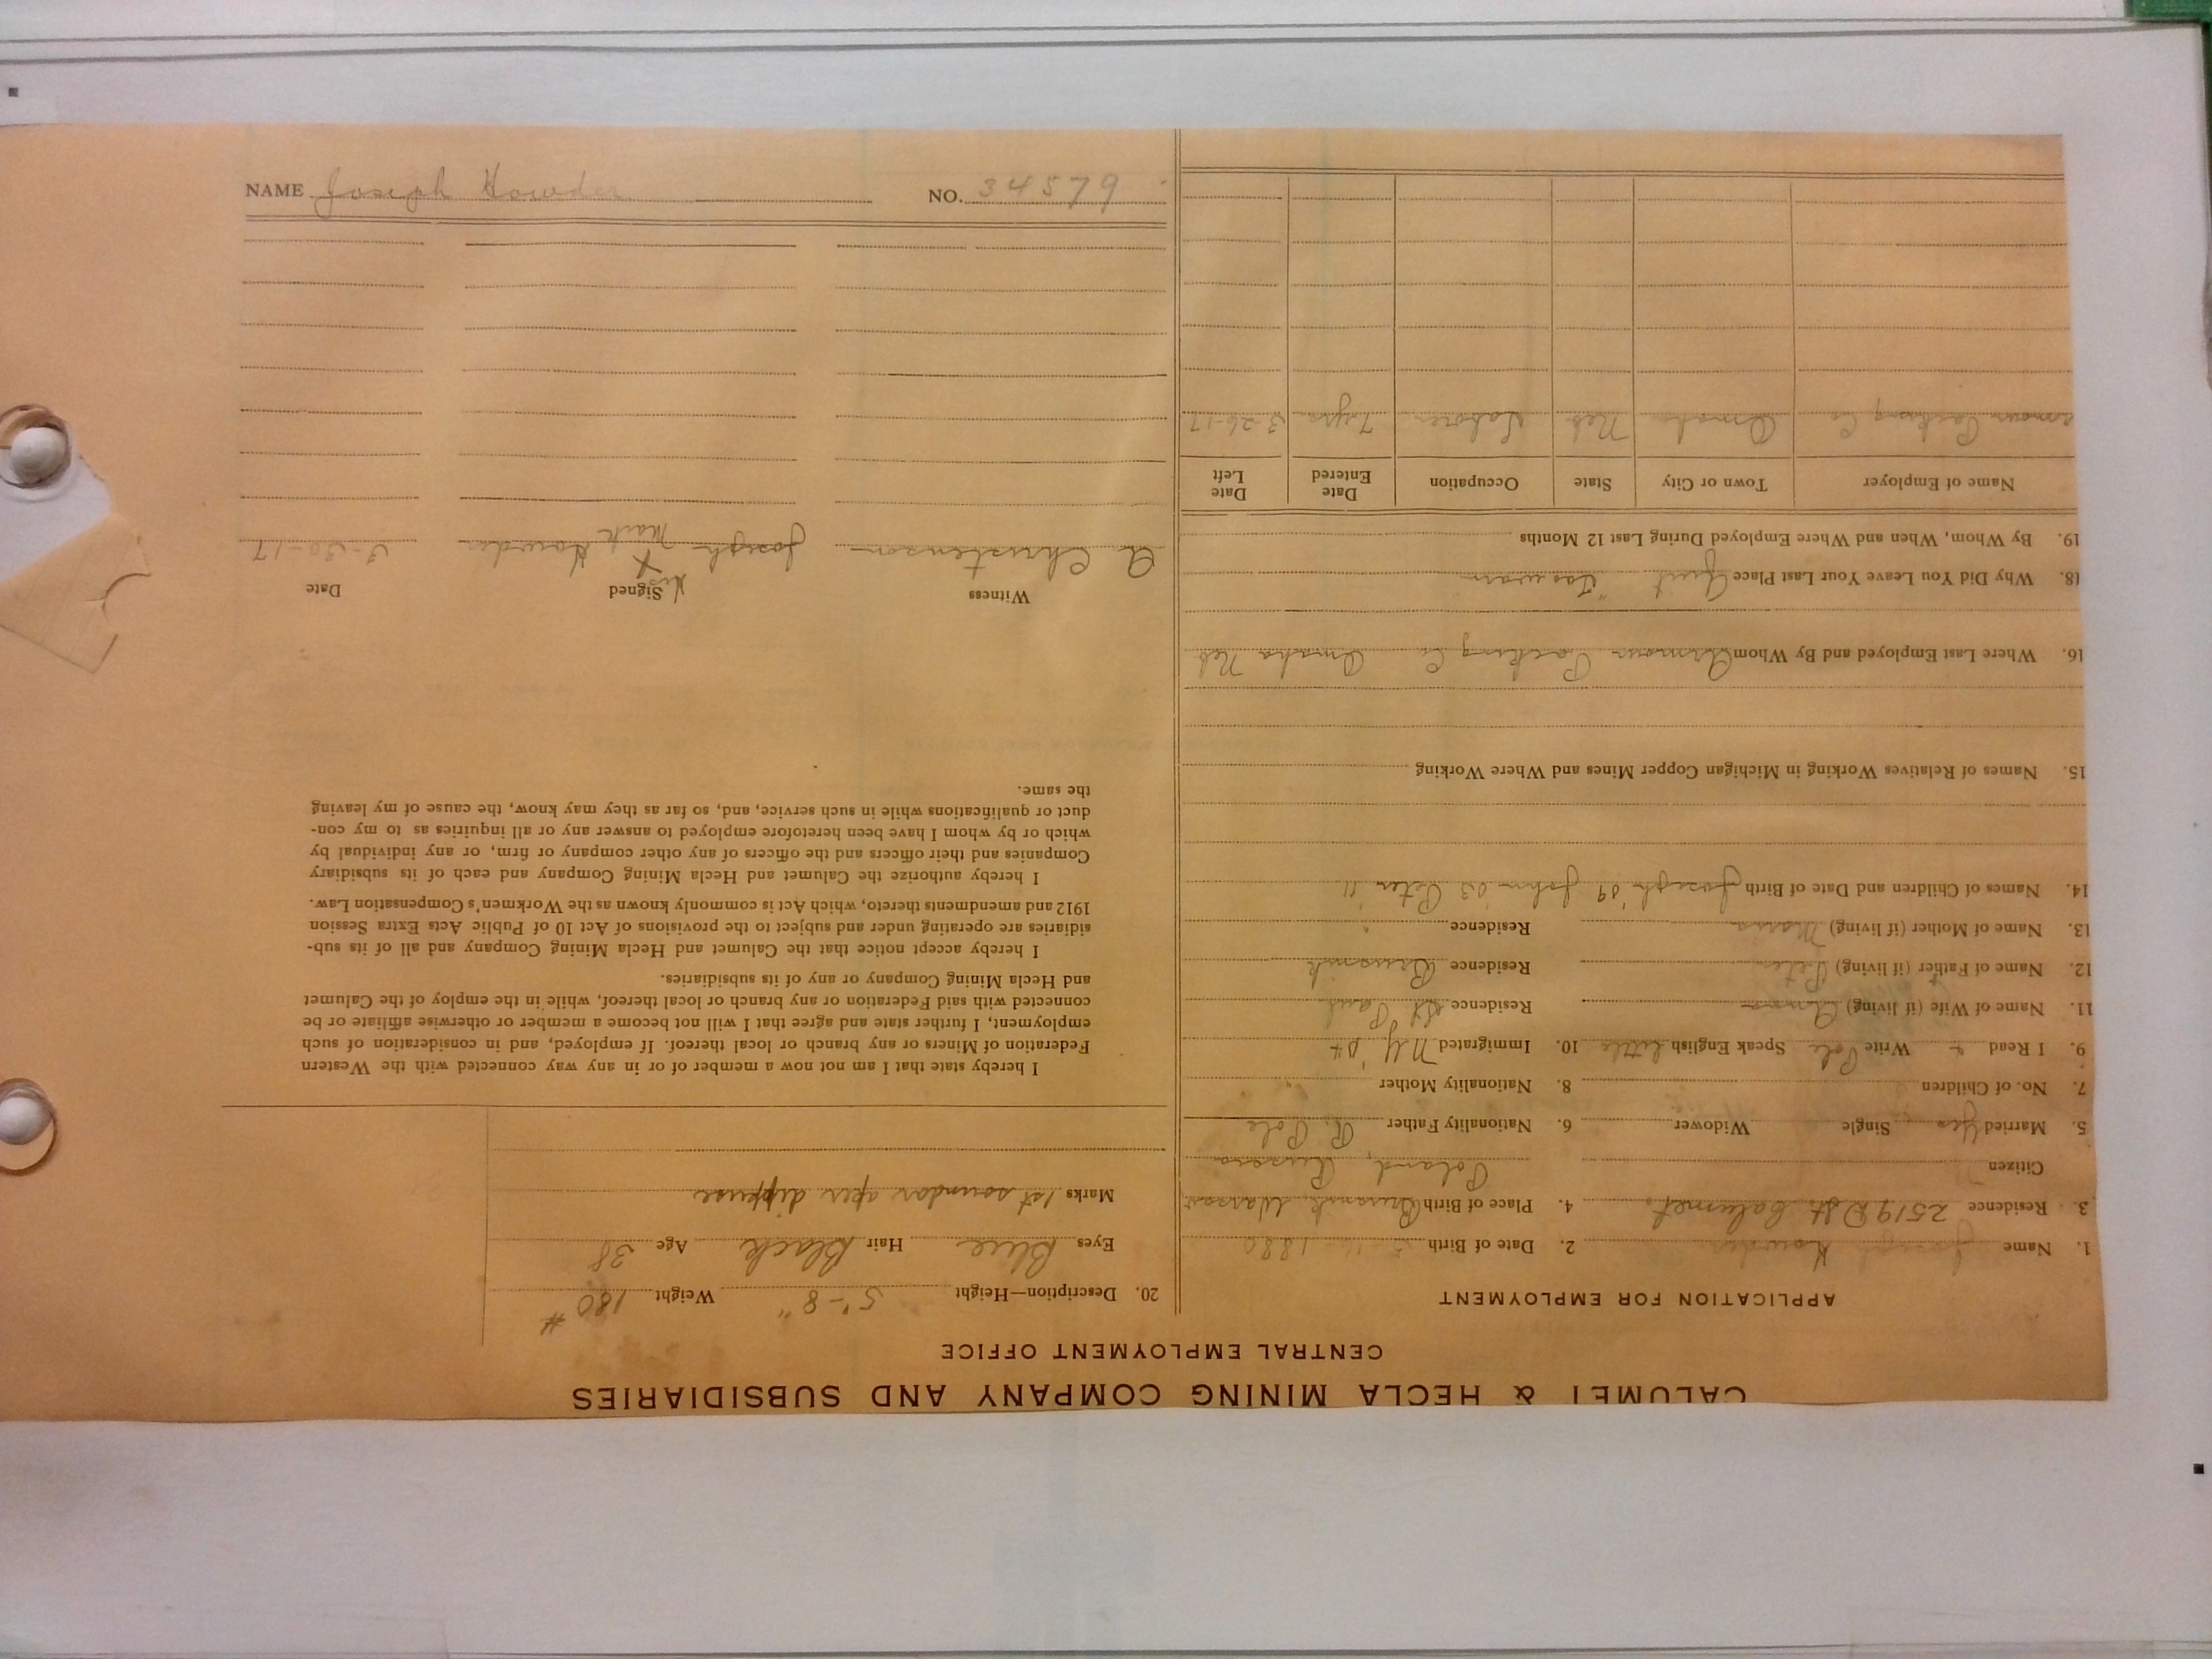 CALUMET & HECLA MINING COMPANY AND SUBSIDIARIES
CENTRAL EMPLOYMENT OFFICE
APPLICATION FOR EMPLOYMENT
1. Name Joseph Howder 2. Date of Birth 1880
3. Residence 2519 D St. Calumet. 4. Place of Birth Warsaw
Citizen Poland, Russia
5. Married Yes Single Widower 6. Nationality Father R. Pole
7. No. of Children 8. Nationality Mother
9. I Read + Write Pole Speak English little 10. Immigrated N.Y. '04
11. Name of Wife (if living) Anna Residence St Paul
12. Name of Father (if living) Peter Residence
13. Name of Mother (if living) Residence "
14. Names of Children and Date of Birth Joseph '09 John '03 Peter '11
15. Names of Relatives Working in Michigan Copper Mines and Where Working
16. Where Last Employed and By Whom Armour Packing Co Omaha Neb
18. Why Did You Leave Your Last Place Quit
19. By Whom, When and Where Employed During Last 12 Months
Name of Employer Town or City State Occupation Date Entered Date Left
Armour Packing Co Omaha Neb Laborer 7 yrs 3-26-17
20. Description—Height 5'-8" Weight 180 #
Eyes Blue Hair Black Age 38
Marks 1st
I hereby state that I am not now a member of or in any way connected with the Western
Federation of Miners or any branch or local thereof. If employed, and in consideration of such
employment, I further state and agree that I will not become a member or otherwise affiliate or be
connected with said Federation or any branch or local thereof, while in the employ of the Calumet
and Hecla Mining Company or any of its subsidiaries.
I hereby accept notice that the Calumet and Hecla Mining Company and all of its sub-
sidiaries are operating under and subject to the provisions of Act 10 of Public Acts Extra Session
1912 and amendments thereto, which Act is commonly known as the Workmen's Compensation Law.
I hereby authorize the Calumet and Hecla Mining Company and each of its subsidiary
Companies and their officers and the officers of any other company or firm, or any individual by
which or by whom I have been heretofore employed to answer any or all inquiries as to my con-
duct or qualifications while in such service, and, so far as they may know, the cause of my leaving
the same.
Witness Signed Date
A Christenson Joseph His X Mark Howder 3-30-17
NAME Joseph Howder NO. 34579